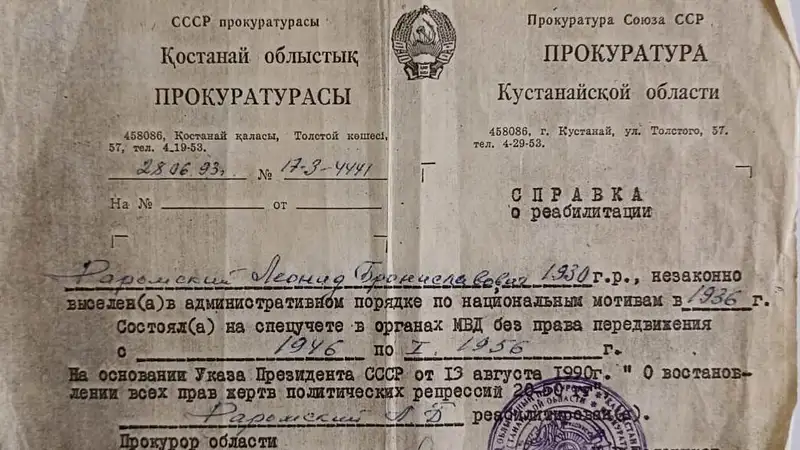 СССР прокуратурасы
Қостанай облыстық
ПРОКУРАТУРАСЫ
458086, Қостанай қаласы, Толстой көшесі,
57, тел. 4-19-53.
28.06.93г. № 17-3-4441
На № от
Прокуратура Союза ССР
ПРОКУРАТУРА
Кустанайской области
458086, г. Кустанай, ул. Толстого, 57.
тел. 4-29-53.
СПРАВКА
о реабилитации
Леонид Брониславович 1930 г.р., незаконно
выселен(а)в административном порядке по национальным мотивам в 1936 г.
Состоял(а) на спецучете в органах МВД без права передвижения
с 1946 по I. 1956 г.
На основании Указа Президента СССР от 13 августа 1990г. " О востанов-
лении всех прав жертв политических репрессий 20-50 гг"
реабилитирован(а).
Прокурор области